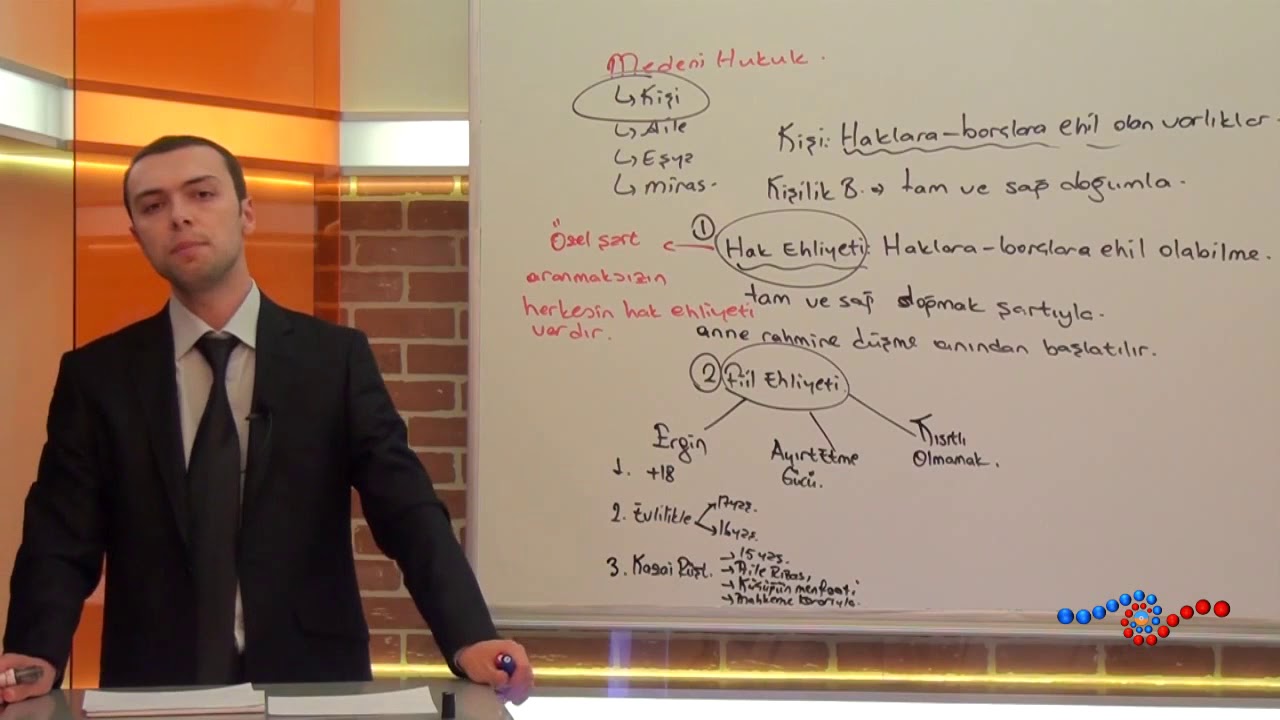 Medeni Hukuk.
↳ Kişi
↳ Aile
↳ Eşya
↳ miras.
Kişi: Haklara-borçlara ehil olan varlıklar.
Kişilik B. → tam ve sağ doğumla.
① Hak Ehliyeti: Haklara-borçlara ehil olabilme.
tam ve sağ doğmak şartıyla.
anne rahmine düşme anından başlatılır.
Özel şart
aranmaksızın
herkesin hak ehliyeti
vardır.
② Fiil Ehliyeti.
Ergin
Ayırt Etme
Gücü.
Kısıtlı
Olmamak.
1. +18
2. Evlilikle
17 yaş.
16 yaş.
3. Kazai Rüşt.
→ 15 yaş.
→ Aile Rızası,
→ Küçüğün menfaati
→ Mahkeme kararıyla.